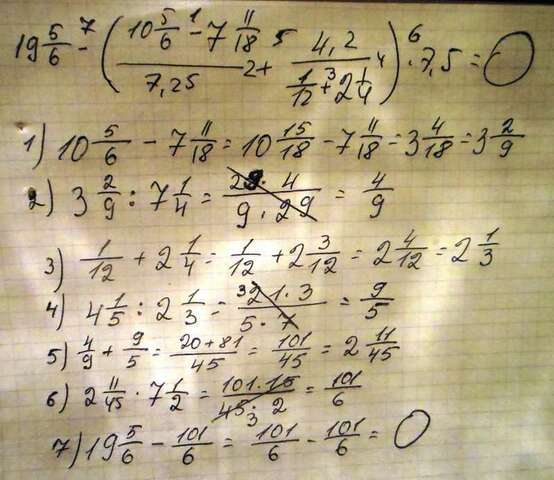 19 5/6 -⁷ ( (10 5/6 -¹ 7 11/18)/7,25 ² +⁵ 4,2/(1/12 +³ 2 1/4) ⁴ ) ·⁶ 7,5 = 0
1) 10 5/6 - 7 11/18 = 10 15/18 - 7 11/18 = 3 4/18 = 3 2/9
2) 3 2/9 : 7 1/4 = (29 · 4)/(9 · 29) = 4/9
3) 1/12 + 2 1/4 = 1/12 + 2 3/12 = 2 4/12 = 2 1/3
4) 4 1/5 : 2 1/3 = (³21 · 3)/(5 · 7) = 9/5
5) 4/9 + 9/5 = (20 + 81)/45 = 101/45 = 2 11/45
6) 2 11/45 · 7 1/2 = (101 · 15)/(45₃ · 2) = 101/6
7) 19 5/6 - 101/6 = 101/6 - 101/6 = 0